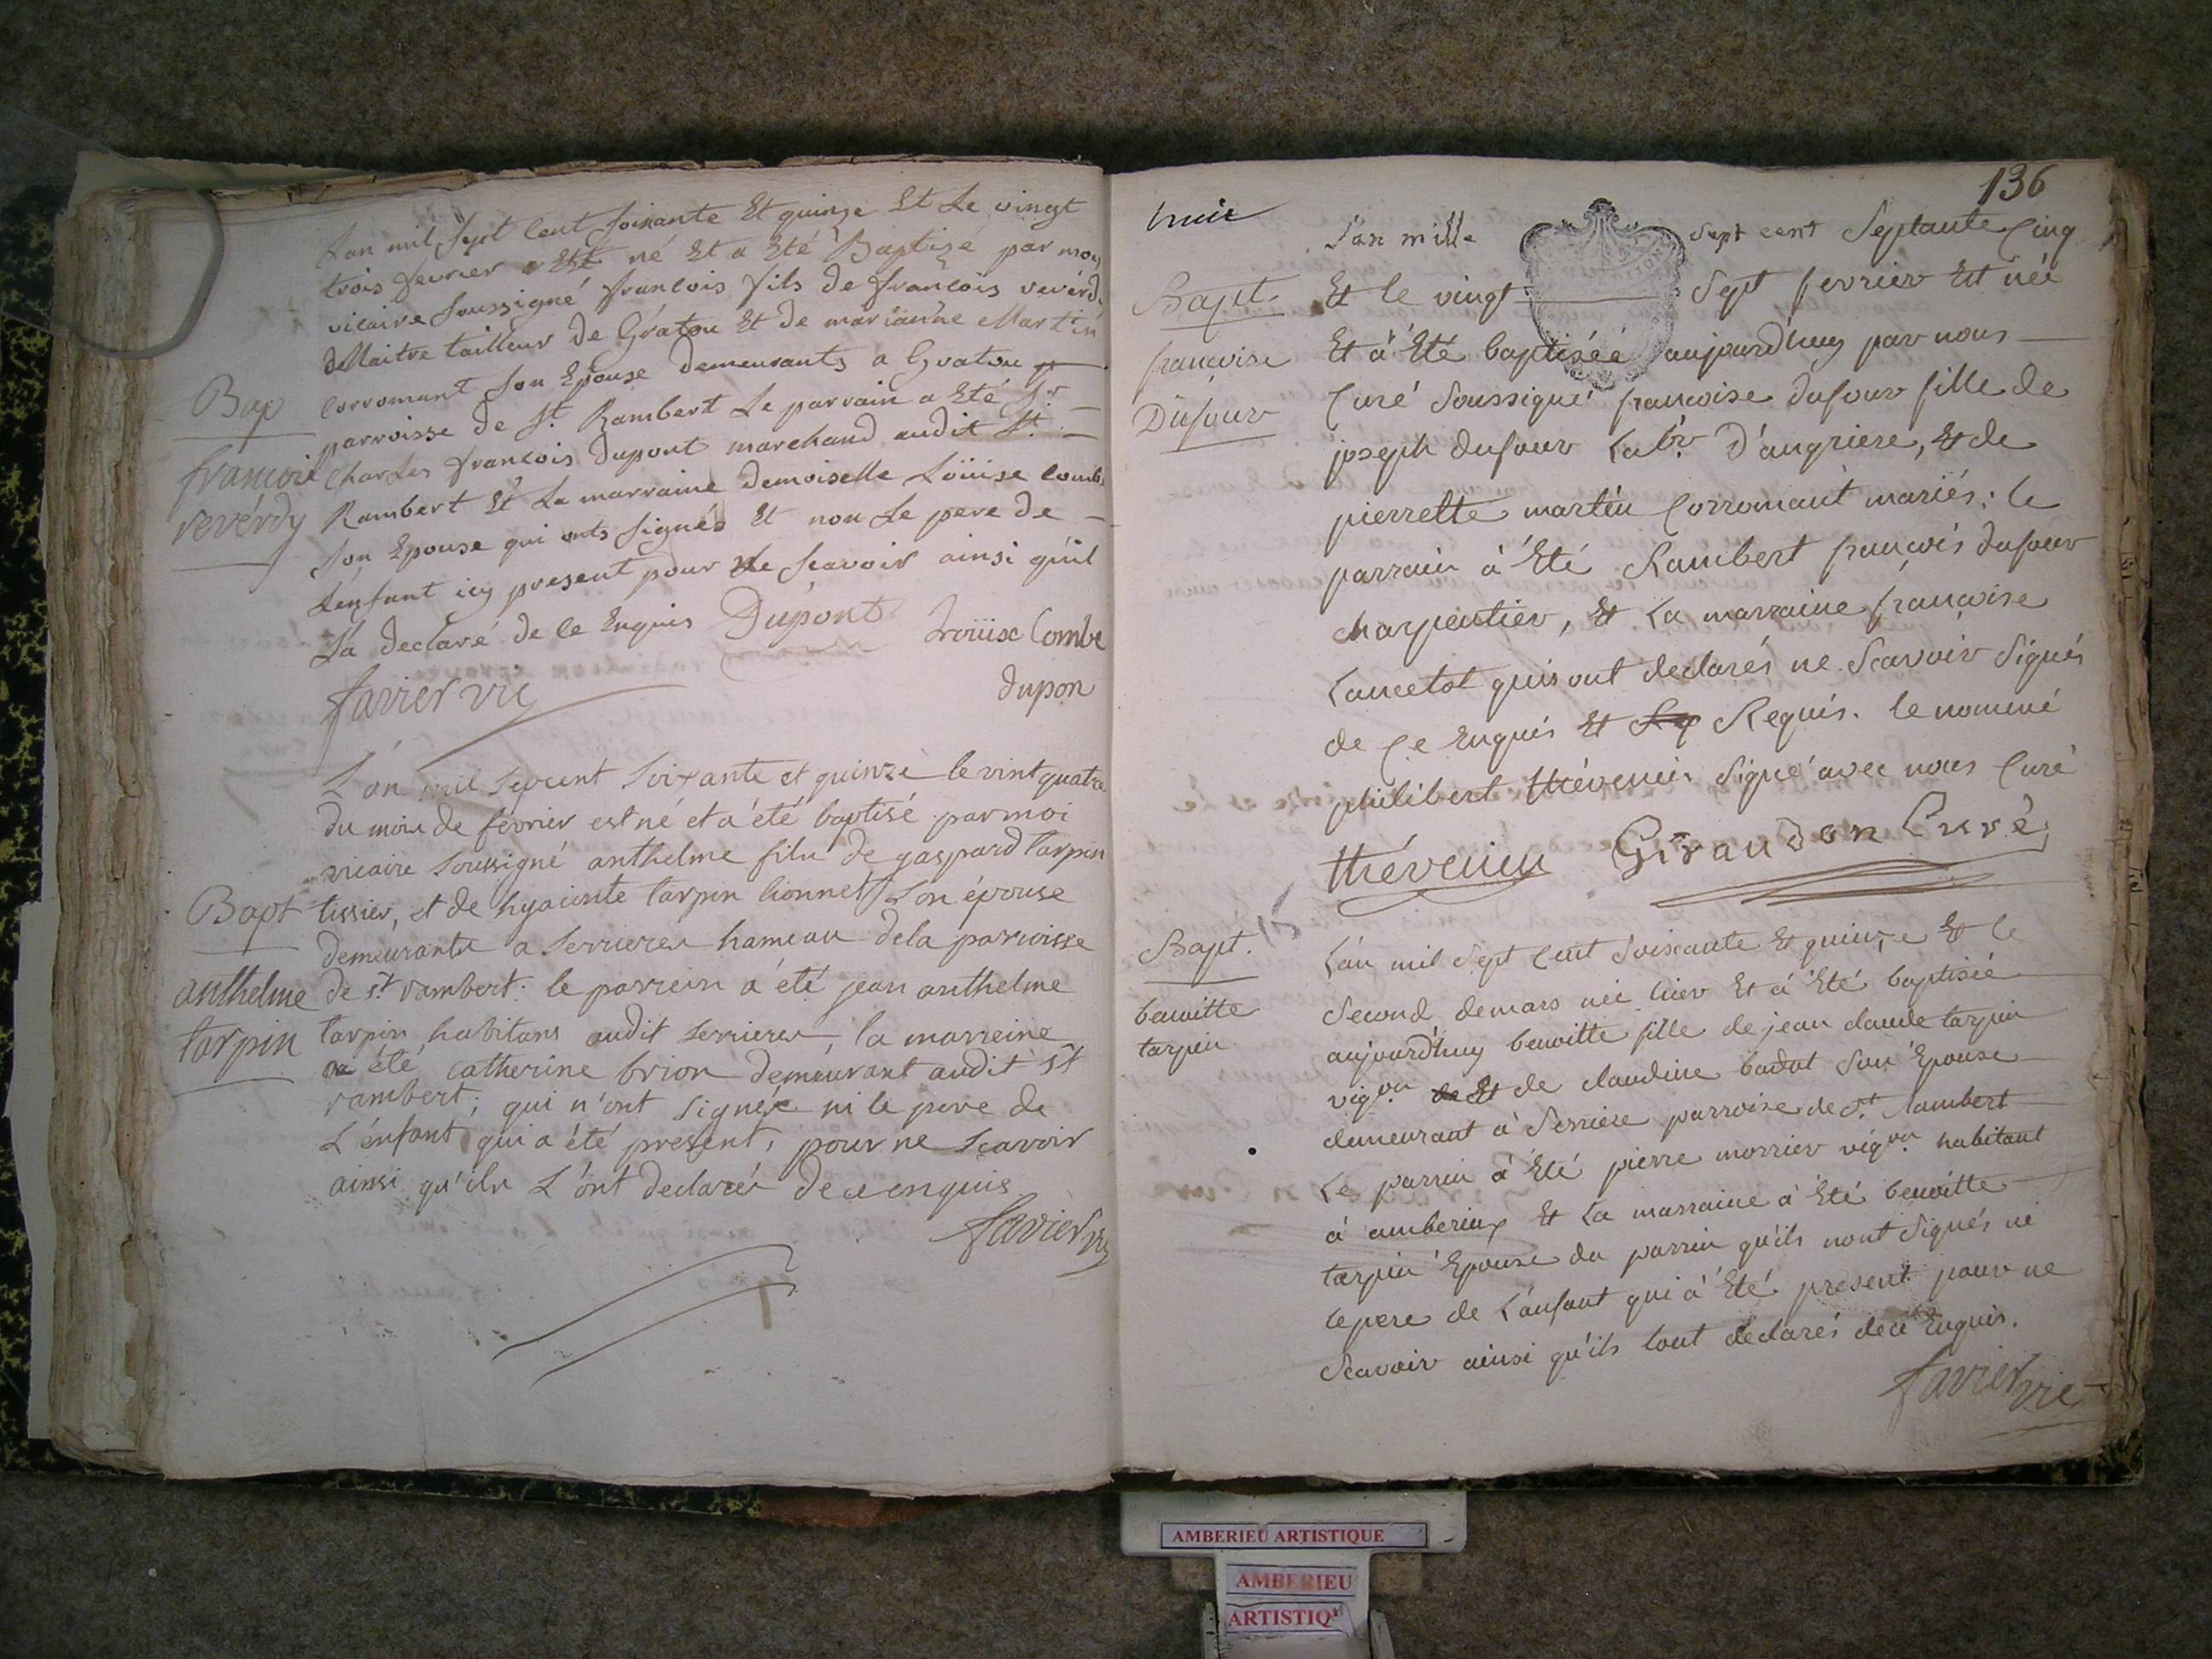 L'an mil sept cent soixante Et quinze Et Le vingt
trois fevrier Est né Et a Eté Baptizé par moy
vicaire soussigné françois fils de françois revérdy
Maitre tailleur de Gratou Et de marianne Martin
corromant son Epouse demeurants a Gratou
parroisse de St. Rambert Le parrain a Eté Sr.
Bap
françois
revérdy
Charles françois dupont marchand audit St.
Rambert Et La marraine demoiselle Loüise Combe
son Epouse qui onts signés Et non Le pere de
L'enfant icy present pour ne scavoir ainsi qu'il
L'a declaré de ce Enquis Dupont Loüise Combe
favier vic dupon
L'an mil sepcent soixante et quinze le vint quatre
du mois de février est né et a été baptisé par moi
vicaire soussigné anthelme fils de gaspard tarpin
Bapt
anthelme
tarpin
tissier, et de hyacinte tarpin lionnet son épouse
demeurants a serrieres hameau dela parroisse
de st rambert: le parrein a été jean anthelme
tarpin habitans audit serrieres, la marreine
a été catherine brion demeurant audit st
rambert; qui n'ont signés ni le pere de
L'énfant qui a été present, pour ne scavoir
ainsi qu'ils L'ont declarés de ce enquis
favier vic
136
L'an mille sept cent Septante Cinq
Bapt.
françoise
Dufour
Et le vingt sept fevrier Est née
Et à Eté baptisée aujourd'huy par nous
Curé Soussigné françoise dufour fille de
joseph dufour Labr. D'angriere, Et de
pierrette martin Corromant mariés: le
parrain à Eté Rambert françois dufour
charpentier, Et La marraine françoise
Lancelot quis ont declarés ne Scavoir Signés
de Ce Enquis Et Requis. le nommé
philibert thévenin Signé avec nous Curé
thévenin Giraudon Curé
15
Bapt.
benoitte
tarpin
L'an mil Sept Cent Soixante Et quinze Et le
Second demars née hier Et à Eté baptisée
aujourd'huy benoitte fille de jean claude tarpin
vigon. de Et de claudine badot Son Epouse
demeurant à Serriere parroise de St. Rambert
Le parrin à Eté pierre morrier vigon. habitant
à amberieux Et La marraine à Eté benoitte
tarpin Epouse du parrin qu'ils nont Signés ni
le pere de L'anfant qui à Eté present pour ne
Scavoir ainsi qu'ils lont declarés dece Enquis.
favier vic
AMBERIEU ARTISTIQUE
AMBERIEU
ARTISTIQ